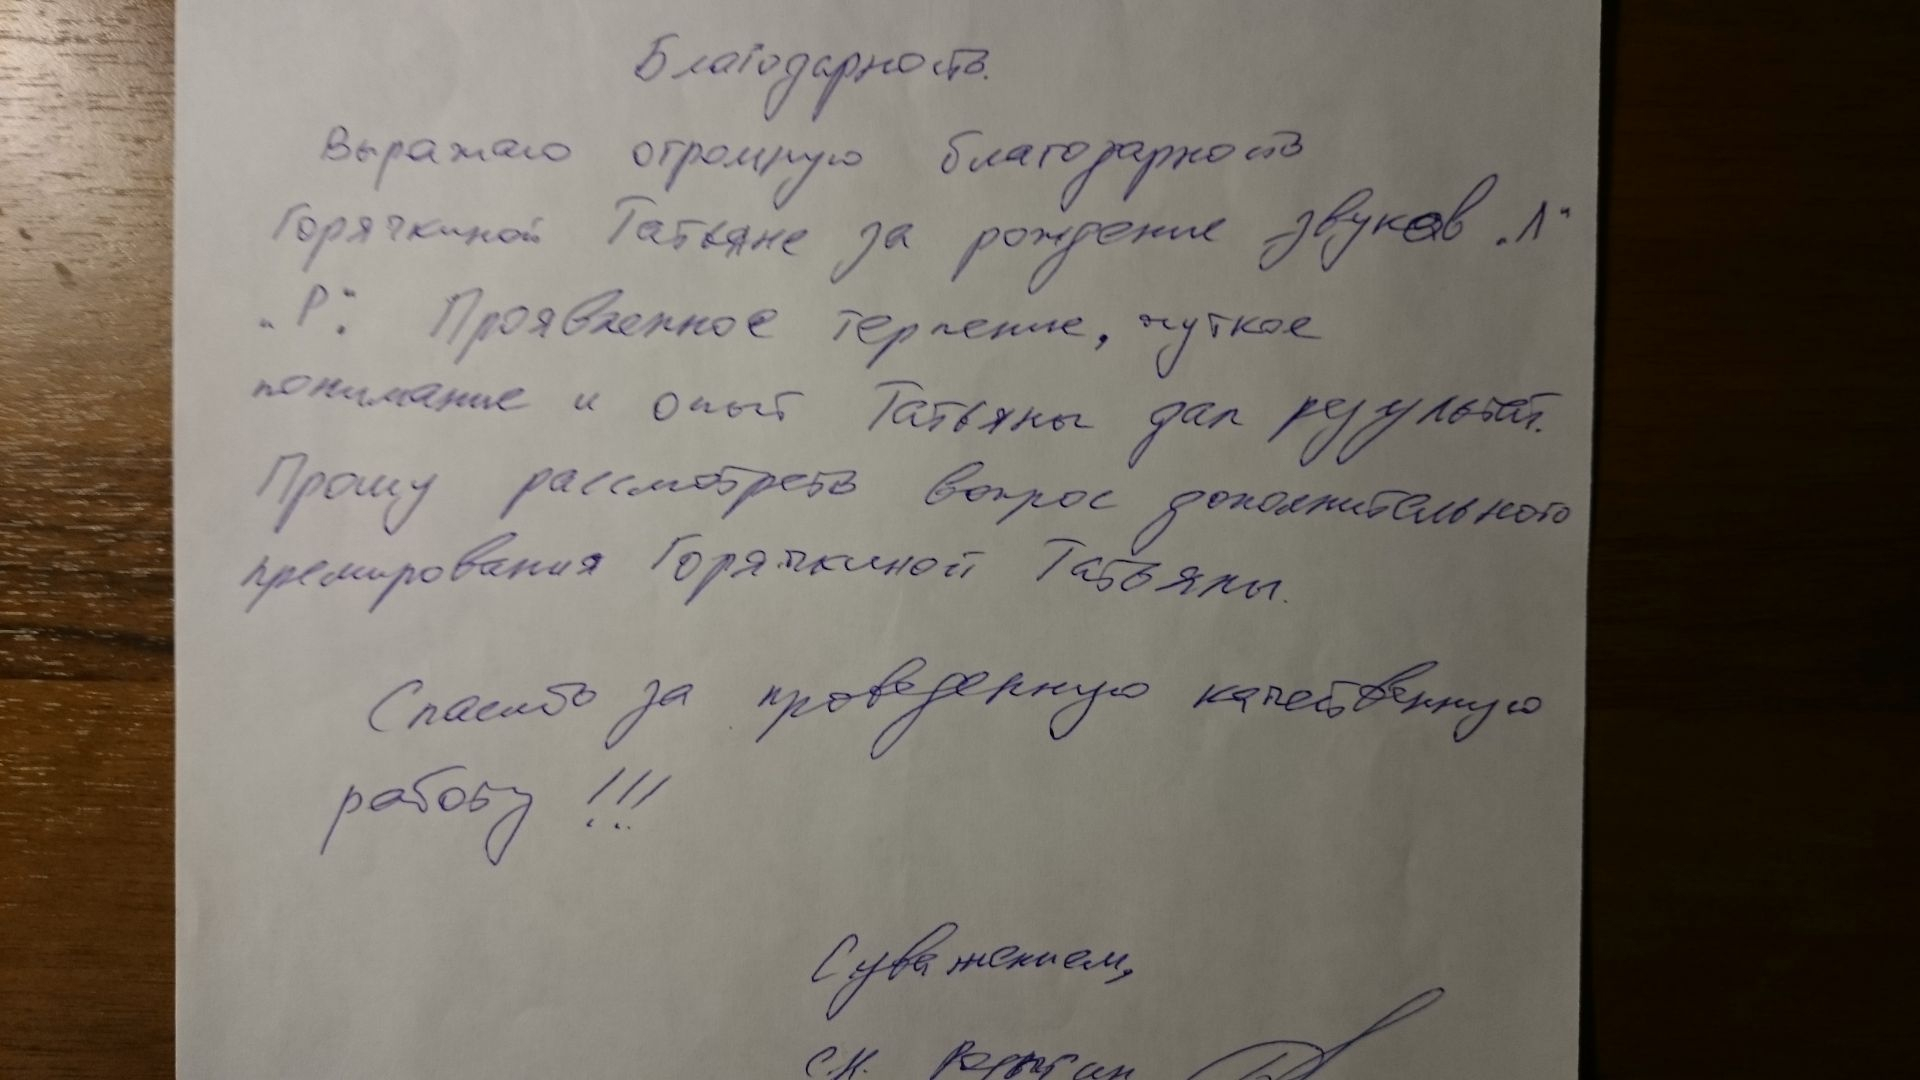 Благодарность.
Выражаю огромную благодарность
Горячкиной Татьяне за рождение звуков „Л“
„Р“. Проявленное терпение, чуткое
понимание и опыт Татьяны дал результат.
Прошу рассмотреть вопрос дополнительного
премирования Горячкиной Татьяны.
Спасибо за проведенную качественную
работу !!!
С уважением,
С.Н.